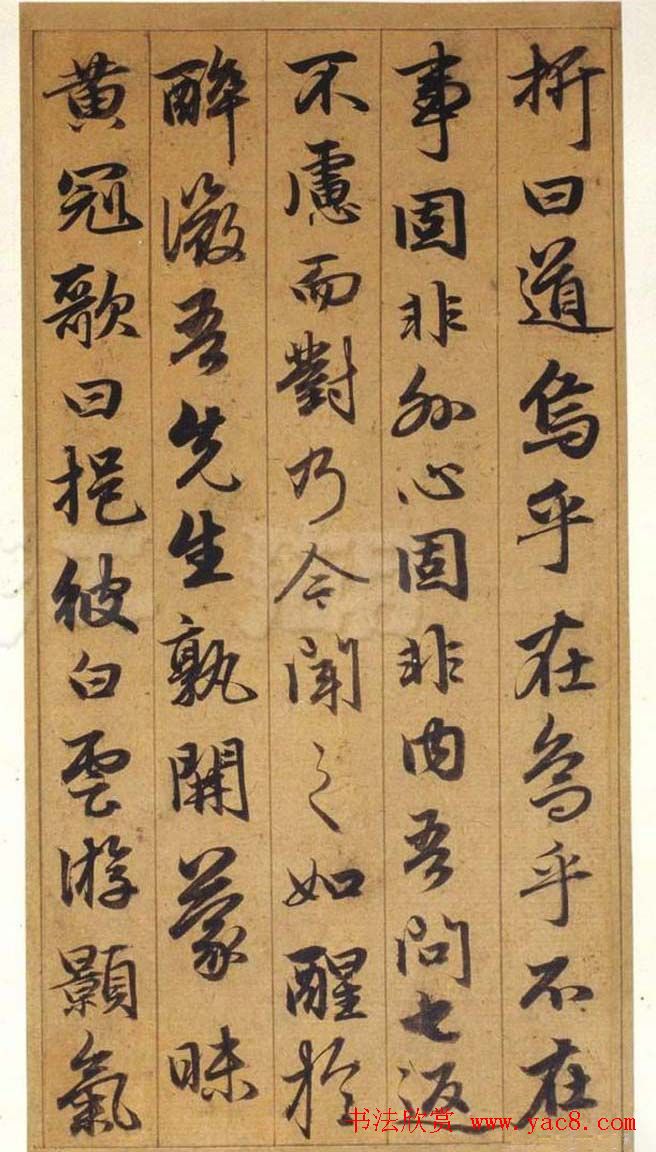 析曰道烏乎在烏乎不在
事固非外心固非内吾問七返
不慮而對乃今聞之如醒於
醉微吾先生孰開蒙昧
黄冠歌曰挹彼白雲游顥氣
书法欣赏 www.yac8.com